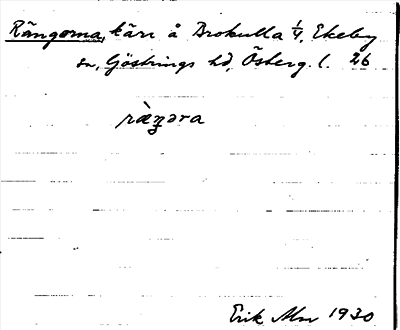 Rängorna, kärr å Brokulla 1/4, Ekeby
sn, Göstrings hd, Österg. l. 26
ràŋ̠ɔra
Erik Mr 1930